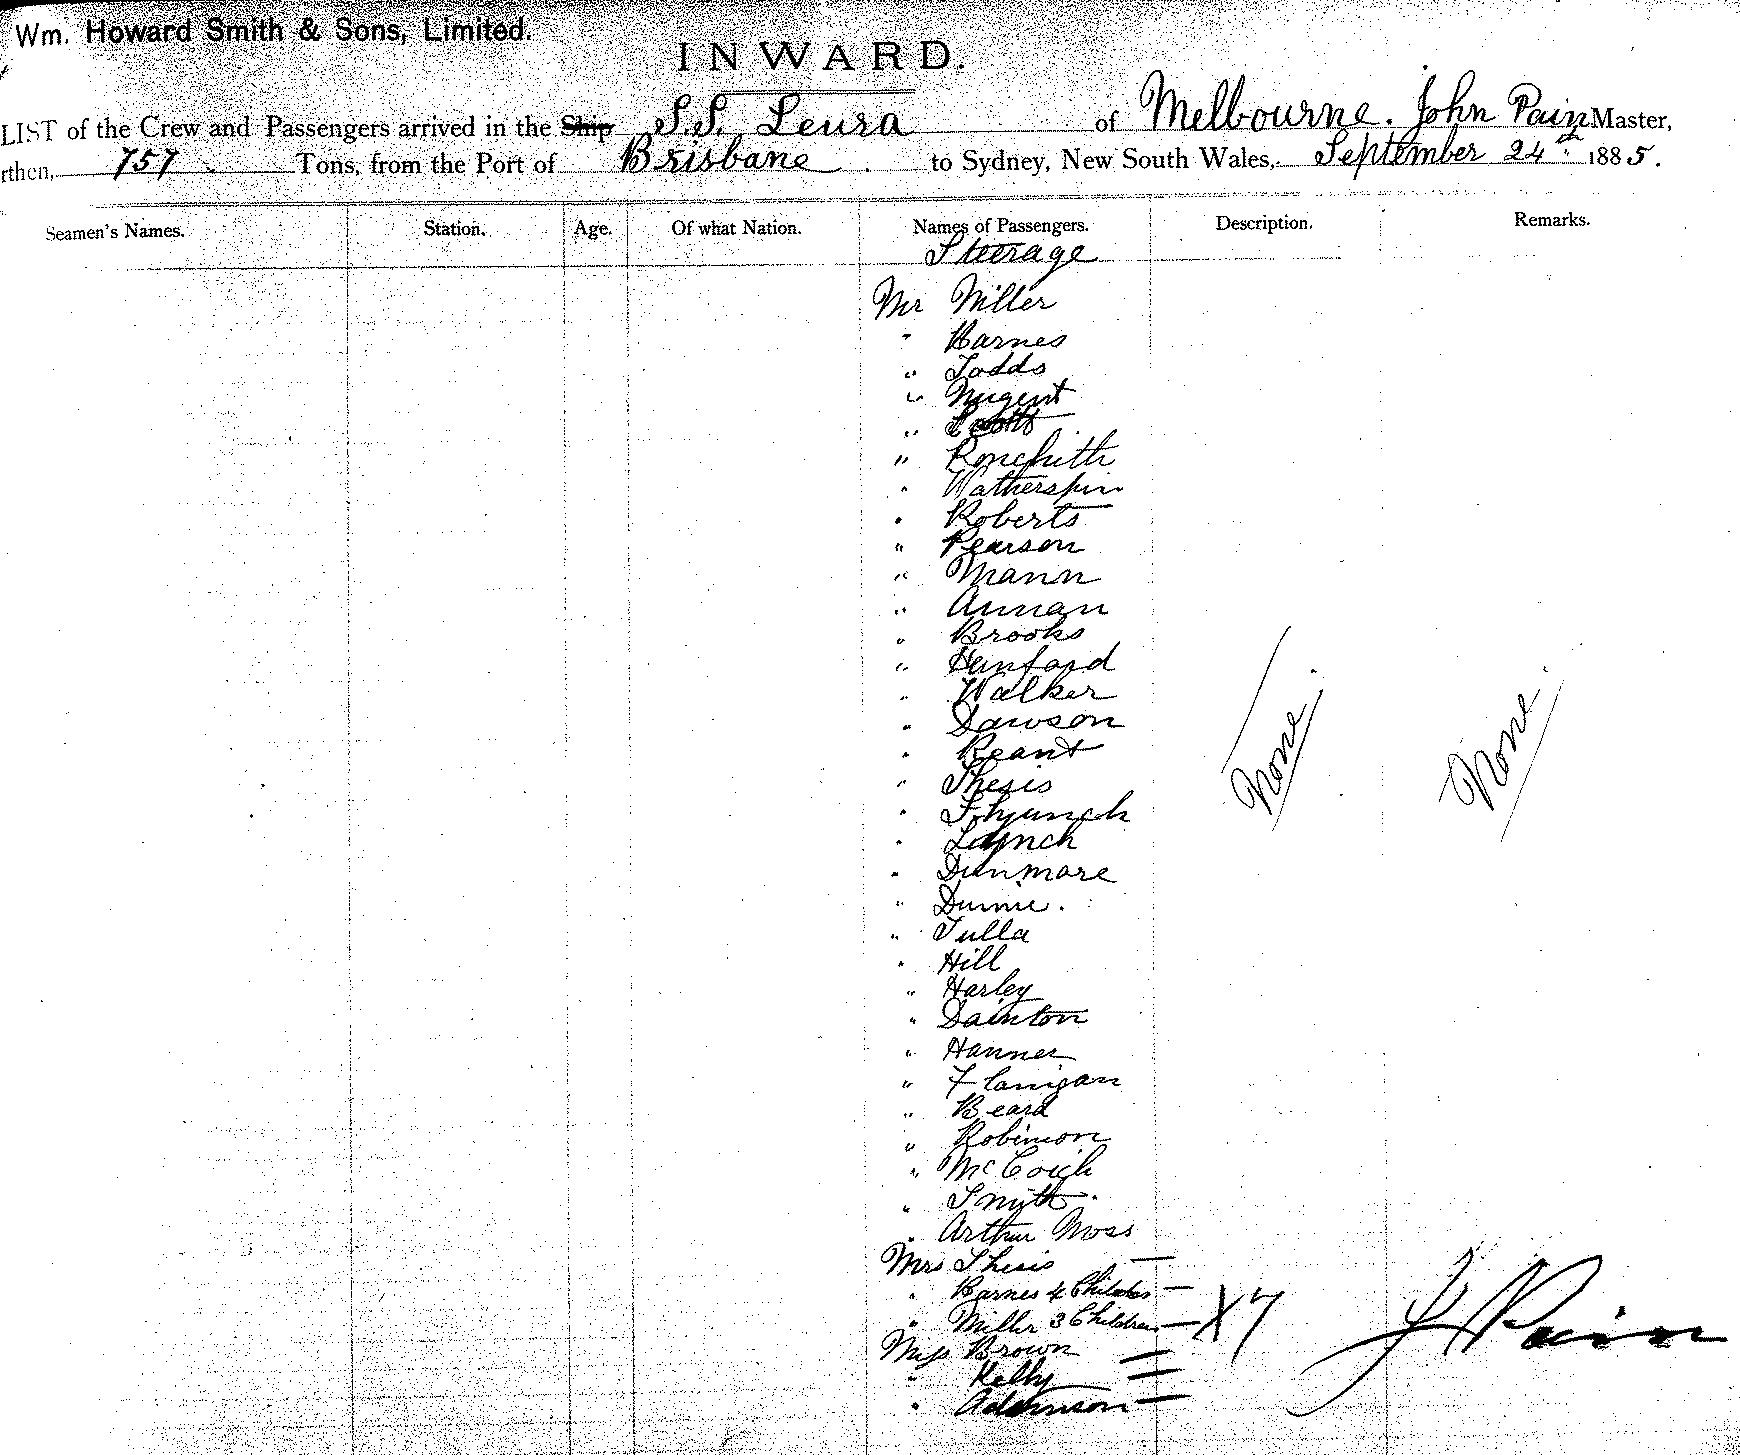 Wm. Howard Smith & Sons, Limited.
INWARD.
LIST of the Crew and Passengers arrived in the Ship S.S. Leura of Melbourne. John Pain Master,
rthen, 757 Tons, from the Port of Brisbane to Sydney, New South Wales, September 24th 1885.
Seamen's Names. Station. Age. Of what Nation. Names of Passengers. Description. Remarks.
Steerage
Mr Miller
" Barnes
" Todds
" Nugent
"
"
" Watherspin
" Roberts
" Pearson
" Mann
" Annan
" Brooks
" Hanford
" Walker
" Dawson
" Reant
" Thesis
"
" Lynch
" Dunmore
" Dunne.
" Tulla
" Hill
" Harley
" Dainton
" Hanner
" Flanigan
" Beard
" Robinson
" McCoigh
" Smith.
" Arthur Moss
Mrs Thesis —
" Barnes 4 Children —
" Miller 3 Children —
Miss Brown —
" Kelly —
" Adamson —
None.
None.
X7
J Pain